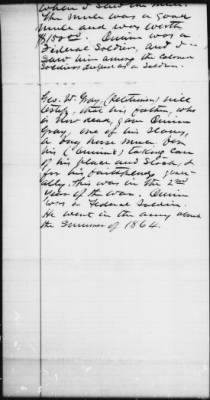 when I said the mule.
The mule was a good
mule and was worth
$150.00. Quinn was a
Federal Soldier, and I
saw him among the Colored
Soldiers as a Soldier.
Geo. W. Gray, (Petitioner) will
testify, that his father, who
is now dead, gave Quinn
Gray, one of his slaves,
a bay horse mule for
his (Quinn's) taking care
of his place and Stock, &
for his faithfulness gener-
ally. This was in the 2nd
year of the war. Quinn
was a Federal Soldier.
He went in the army about
the Summer of 1864.